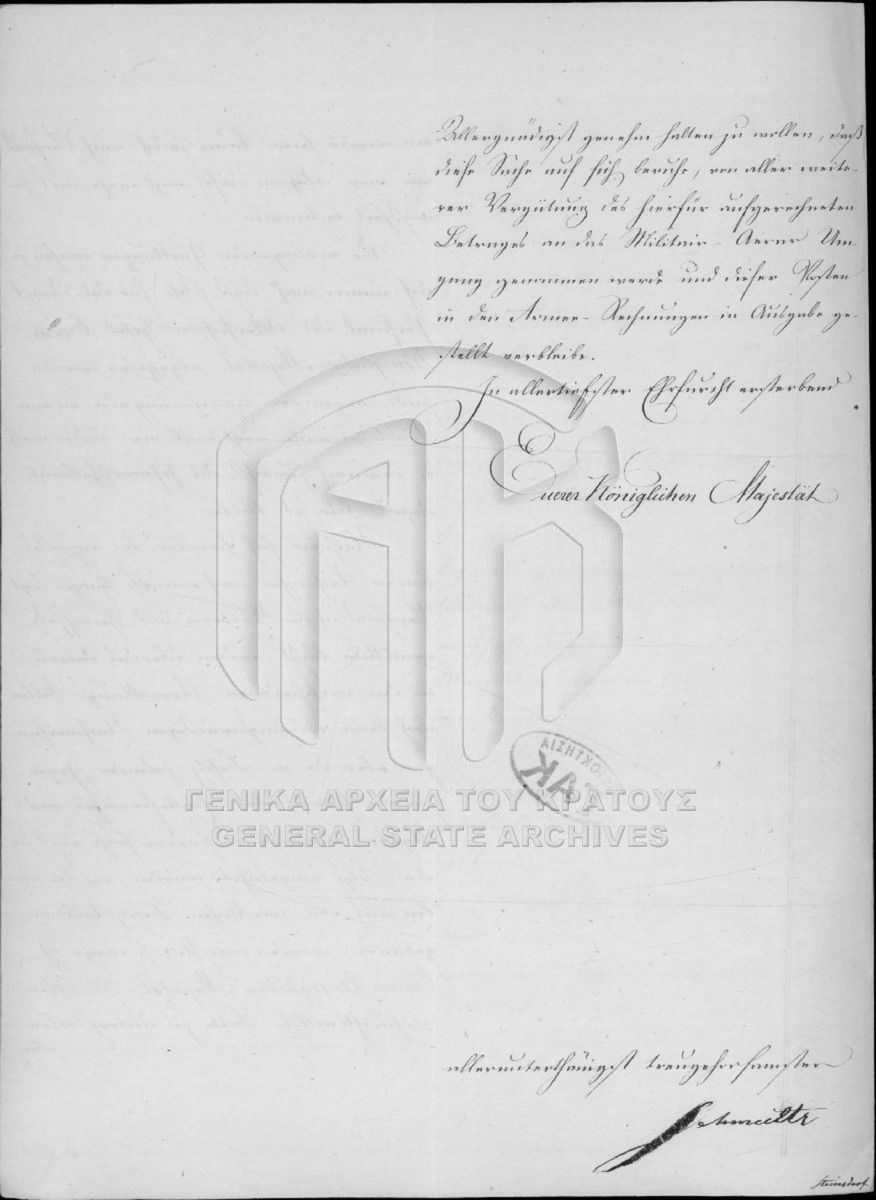 Allergnädigst genehm halten zu wollen, daß
diese Sache auf sich beruhe, von aller weite-
rer Vergütung des hierfür aufgerechneten
Betrages an das Militair-Aerar Um-
gang genommen werde und dieser Posten
in den Armee-Rechnungen in Ausgabe ge-
stellt verbleibe.
In allertiefster Ehrfurcht ersterbend
Euerer Königlichen Majestät
ΓΕΝΙΚΑ ΑΡΧΕΙΑ ΤΟΥ ΚΡΑΤΟΥΣ
GENERAL STATE ARCHIVES
allerunterthänigst treugehorsamster
Schmaltz